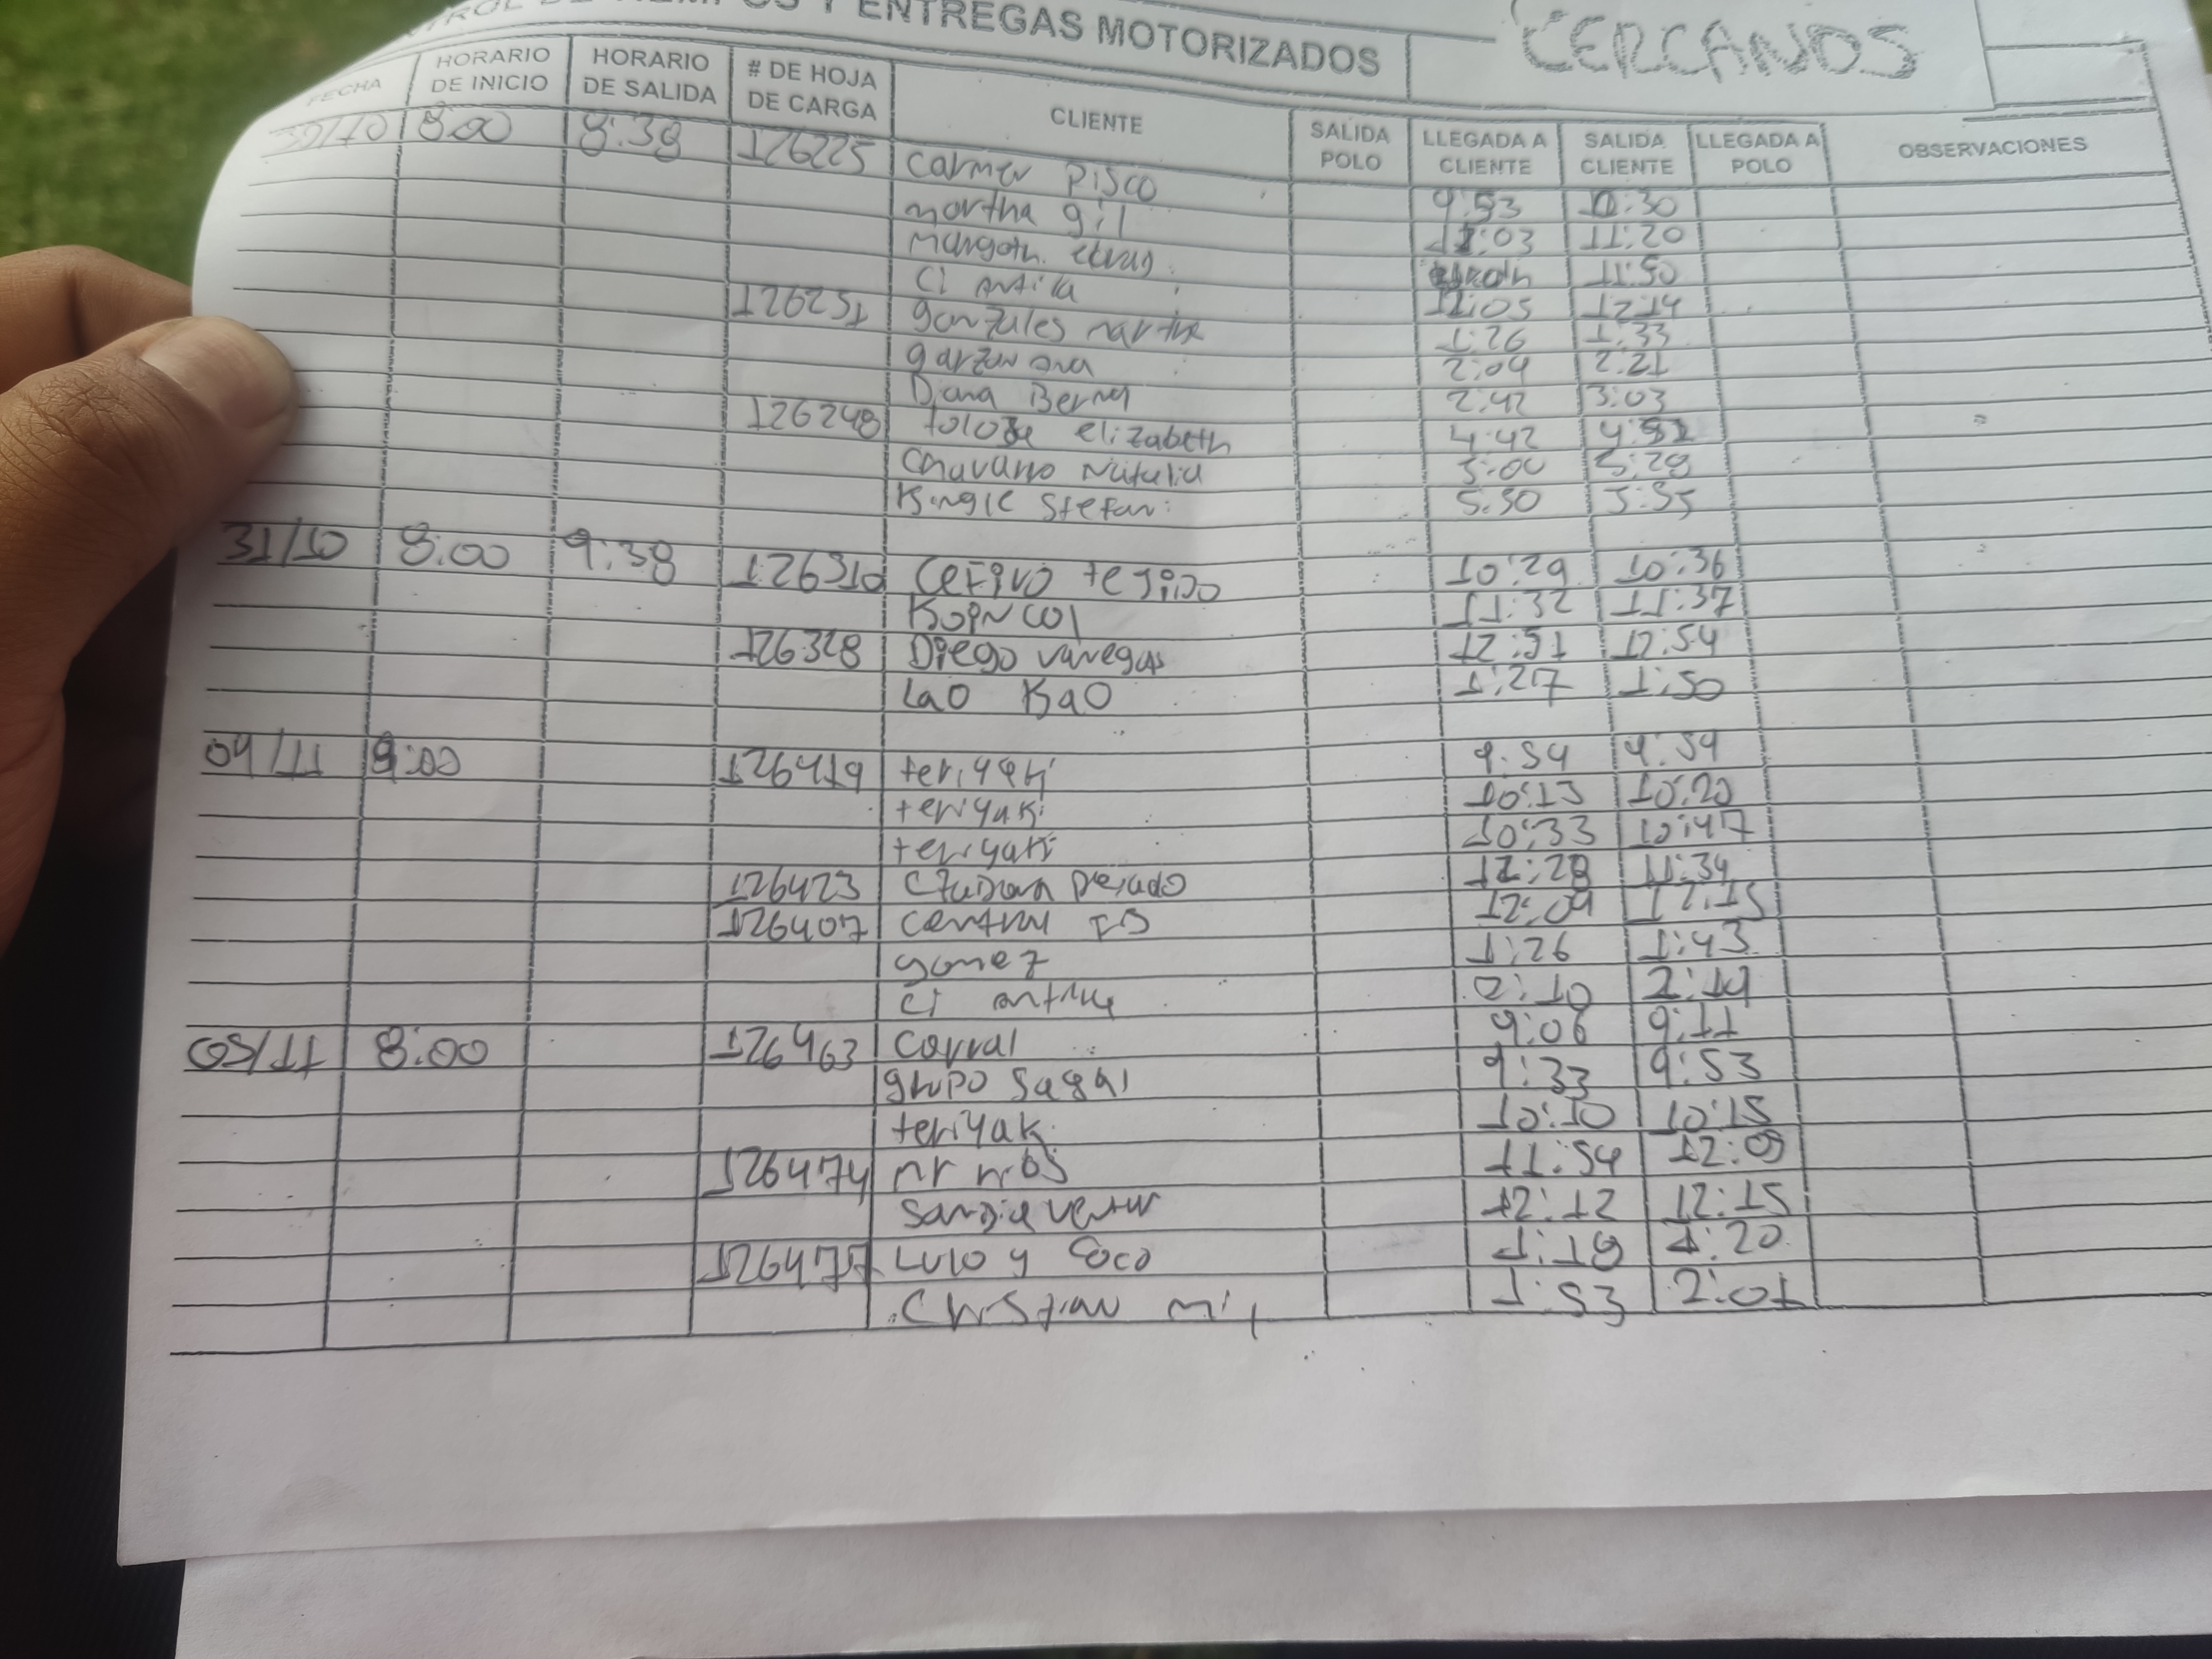 ENTREGAS MOTORIZADOS CERCANOS
FECHA HORARIO DE INICIO HORARIO DE SALIDA # DE HOJA DE CARGA CLIENTE SALIDA POLO LLEGADA A CLIENTE SALIDA CLIENTE LLEGADA A POLO OBSERVACIONES
8:00 8:38 126225 Carmen Pisco 9:53
martha gil 11:03 11:20
Margoth 11:50
Ci 12:05 12:14
126251 gonzules martha 1:26 1:33
garzon ana 2:04 2:21
Diana Bernal 2:42 3:03
126248 elizabeth 4:42
Chavarro Natalia 5:00 5:28
Stefani 5:30 5:35
31/10 8:00 9:38 126310 Cefivo tejido 10:29 10:36
Koincol 11:32 11:37
126328 Diego vanegas 12:51 12:54
Lao Kao 1:27 1:50
04/11 8:00 126419 teriyaki 9:54 9:59
teriyaki 10:13 10:20
teriyaki 10:33 10:47
126423 12:28 11:34
126407 central 12:09 12:15
gomez 1:26 1:43
ci 2:10 2:19
05/11 8:00 126463 Corral 9:06 9:11
grupo Sagal 9:33 9:53
teriyaki 10:10 10:15
126474 mr ribs 11:54 12:09
12:12 12:15
126477 Lulo y Coco 1:18 1:20
Christian 1:53 2:01